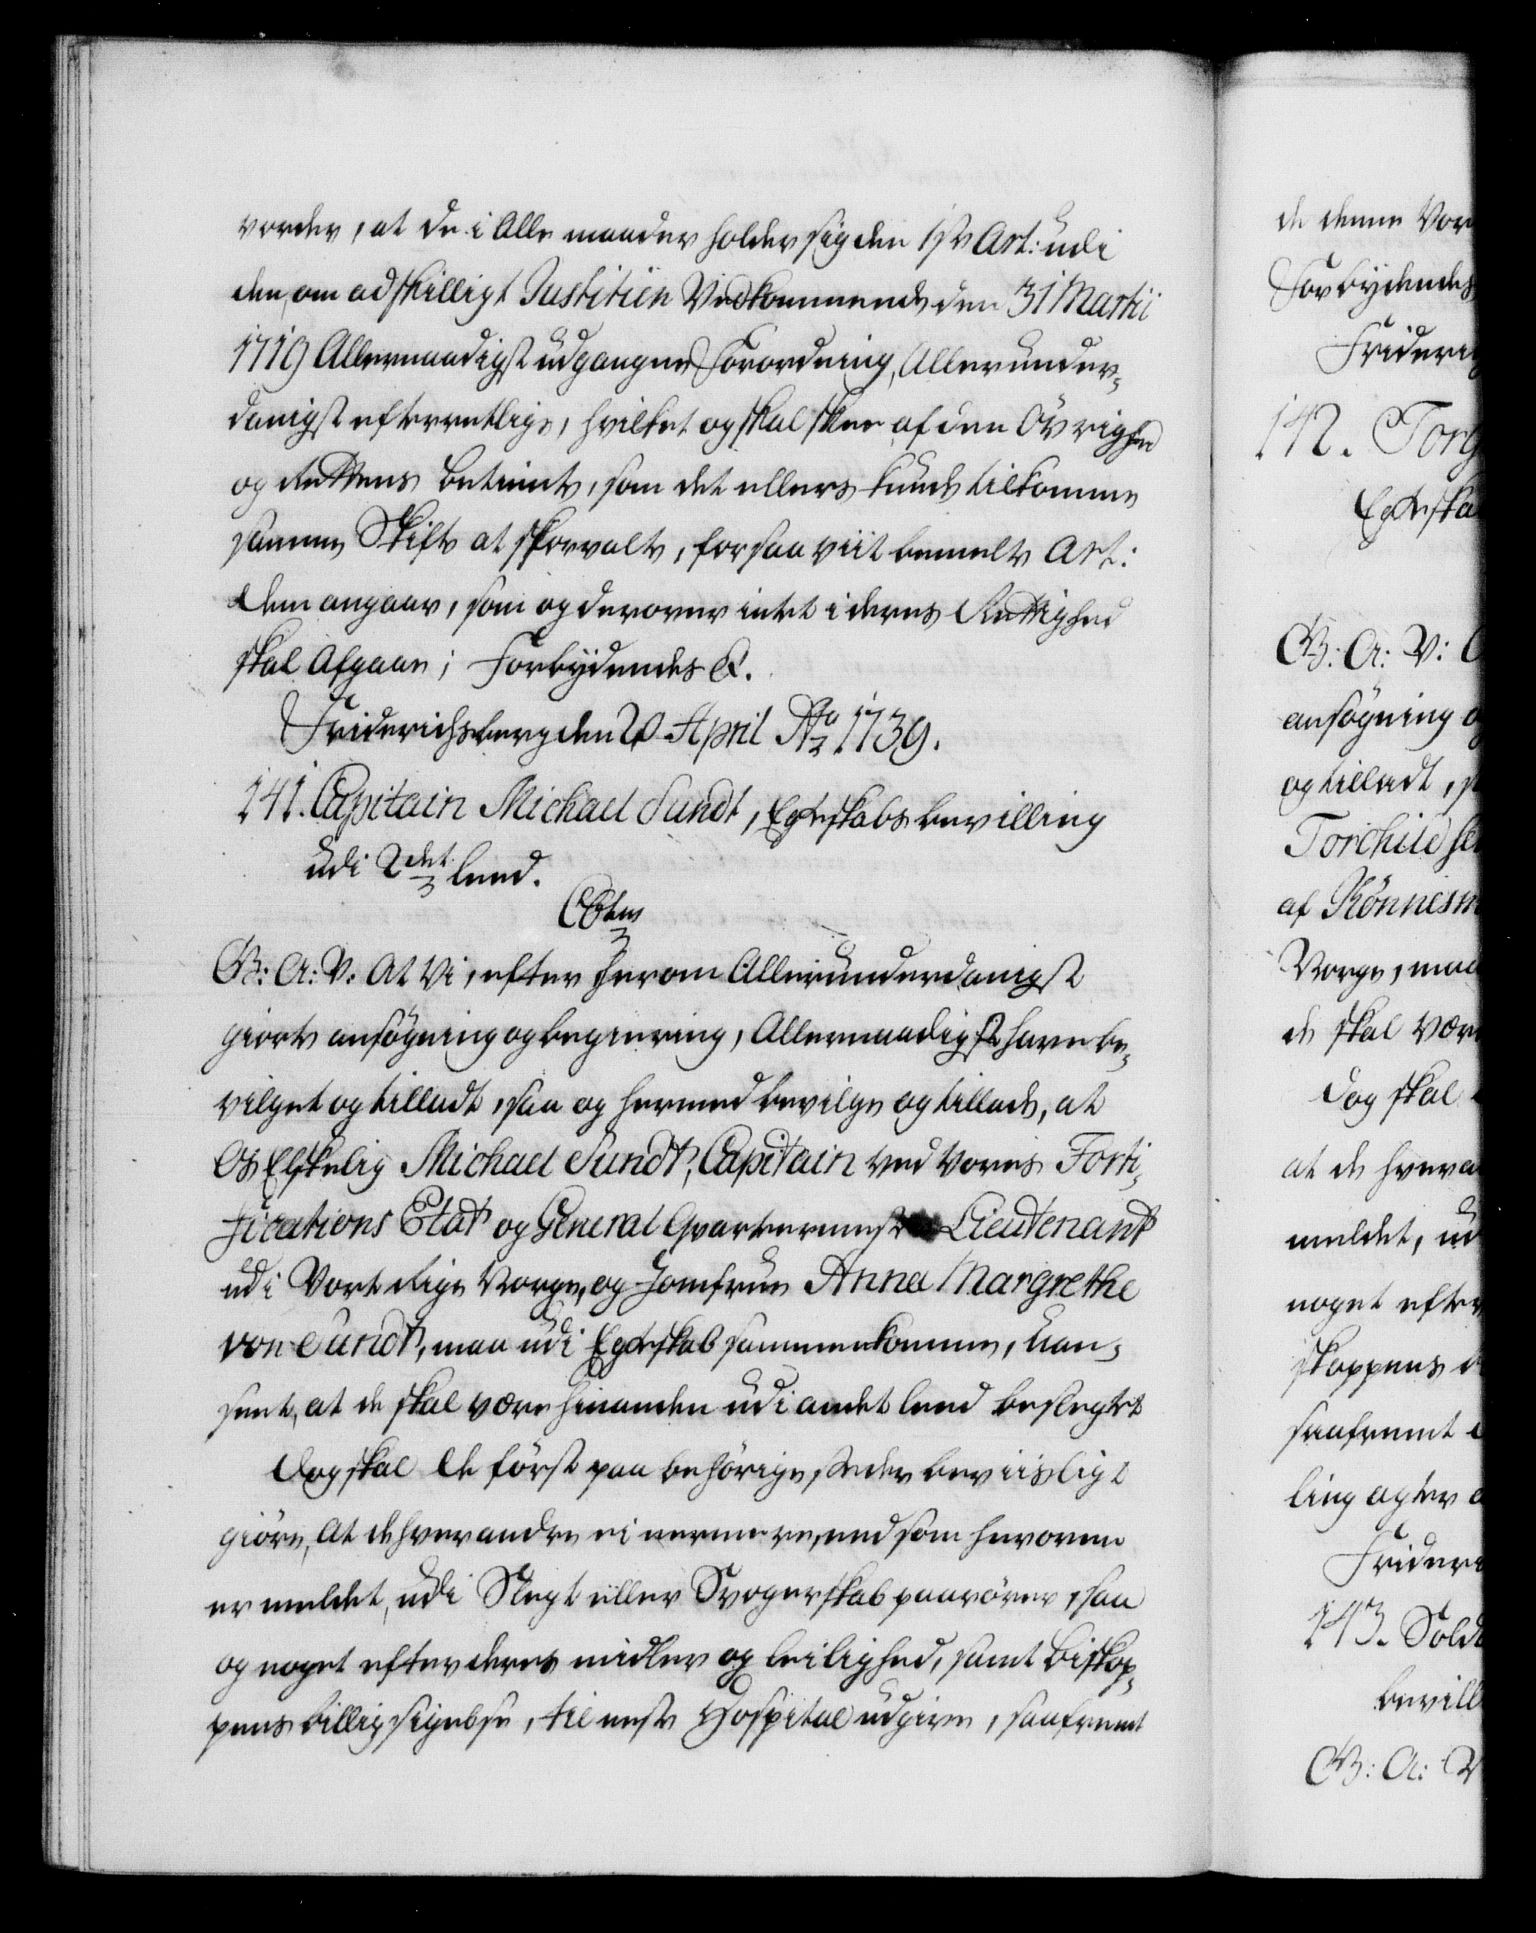 vorder, at de i Alle maader holder sig den 1ste Art: udi
den, om adskilligt Justitien Vedkommende den 31 Martii
1719 Allernaadigst udgangne Forordning, Allerunder-
danigst efterretlige, hvilket og skal skee af den Övrighed
og Rettens betient, som det ellers kunde tilkomme
samme Skifte at forvalte, forsaaviit bemelte Art:
dem angaar, som og derover intet i deres Rettighed
skal Afgaae; Forbydendes &.
Friderichsberg den 20 April Ao 1739.
141. Capitain Michael Sundt, Egteskabs bevilling
udi 2det leed.
G: A: V. At Vi, efter herom Allerunderdanigst
giorte ansögning og begiering, Allernaadigst have be-
vilget og tilladt, saa og hermed bevilge og tillade, at
Os Elskelig Michael Sundt, Capitain ved Vores Forti-
fications Etat og General Qvarteermest Lieutenant
udi Vort Rige Norge, og Jomfrue Anna Margrethe
von Sundt, maa udi Egteskab sammenkomme, uan-
seet, at de skal være hinanden udi andet leed beslegtet
Dog skal de först paa behörige steder beviisligt
giöre, At de hverandre ei nermere, end som hervoven
er meldet, udi Slegt eller Svogerskab paarörer, saa
og noget efter deres midler og leilighed, samt Biskop-
pens billig sigelse, til neste Hospital udgive, saafremt
de denne Vor
Forbydendes
Frideri
142. Torg
Egteska
G: A: V:
ansögning o
og tilladt, s
Torchild se
af Rönnesm
Norge, maa
de skal være
Dog skal
at de hvera
meldet, ud
noget efter
skoppens
saafremt
ling agter
Frider
143. Solda
bevill
G: A: V